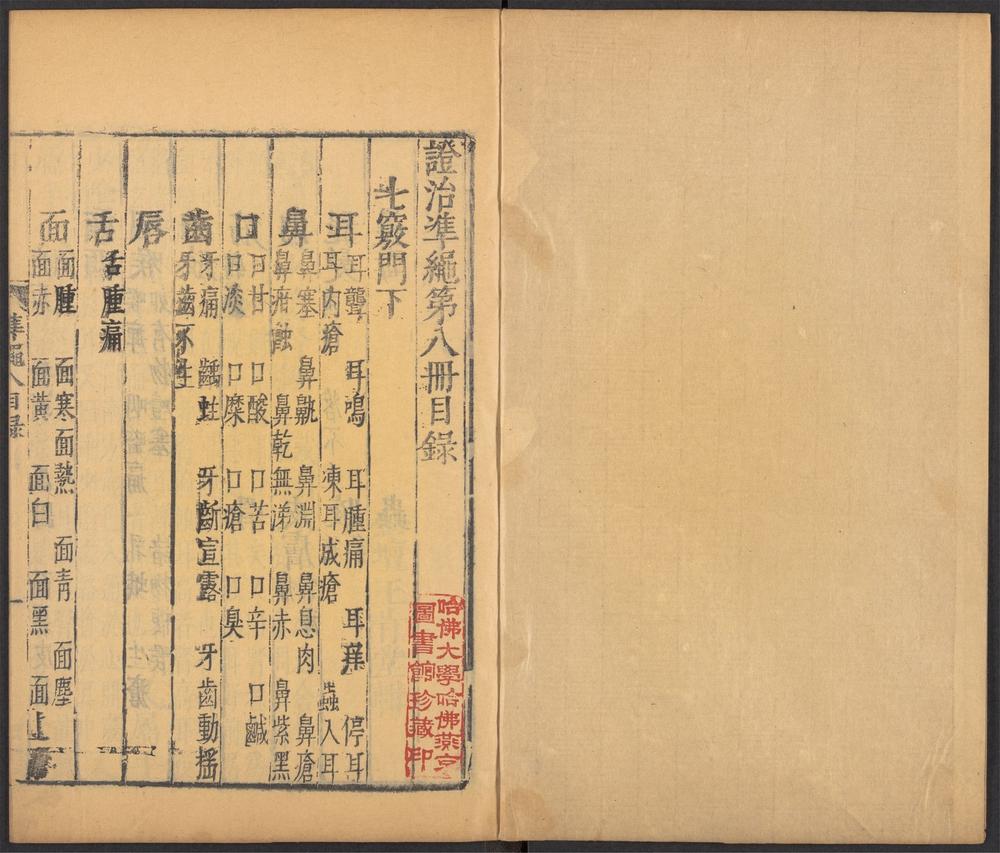 證治準繩第八冊目錄
七竅門下
耳 耳聾 耳鳴 耳腫痛 耳痒 停耳
耳内瘡 凍耳成瘡 蟲入耳
鼻 鼻塞 鼻鼽 鼻淵 鼻息肉 鼻瘡
鼻疳蝕 鼻乾無涕 鼻赤 鼻紫黑
口 口甘 口酸 口苦 口辛 口鹹
口淡 口糜 口瘡 口臭
齒 牙痛 齲蛀 牙齗宣露 牙齒動搖
牙齒不生
唇
舌 舌腫痛
面 面腫 面寒 面熱 面青 面塵
面赤 面黃 面白 面黑 面上
準繩八目錄
一
哈佛大學哈佛燕京
圖書館珍藏印